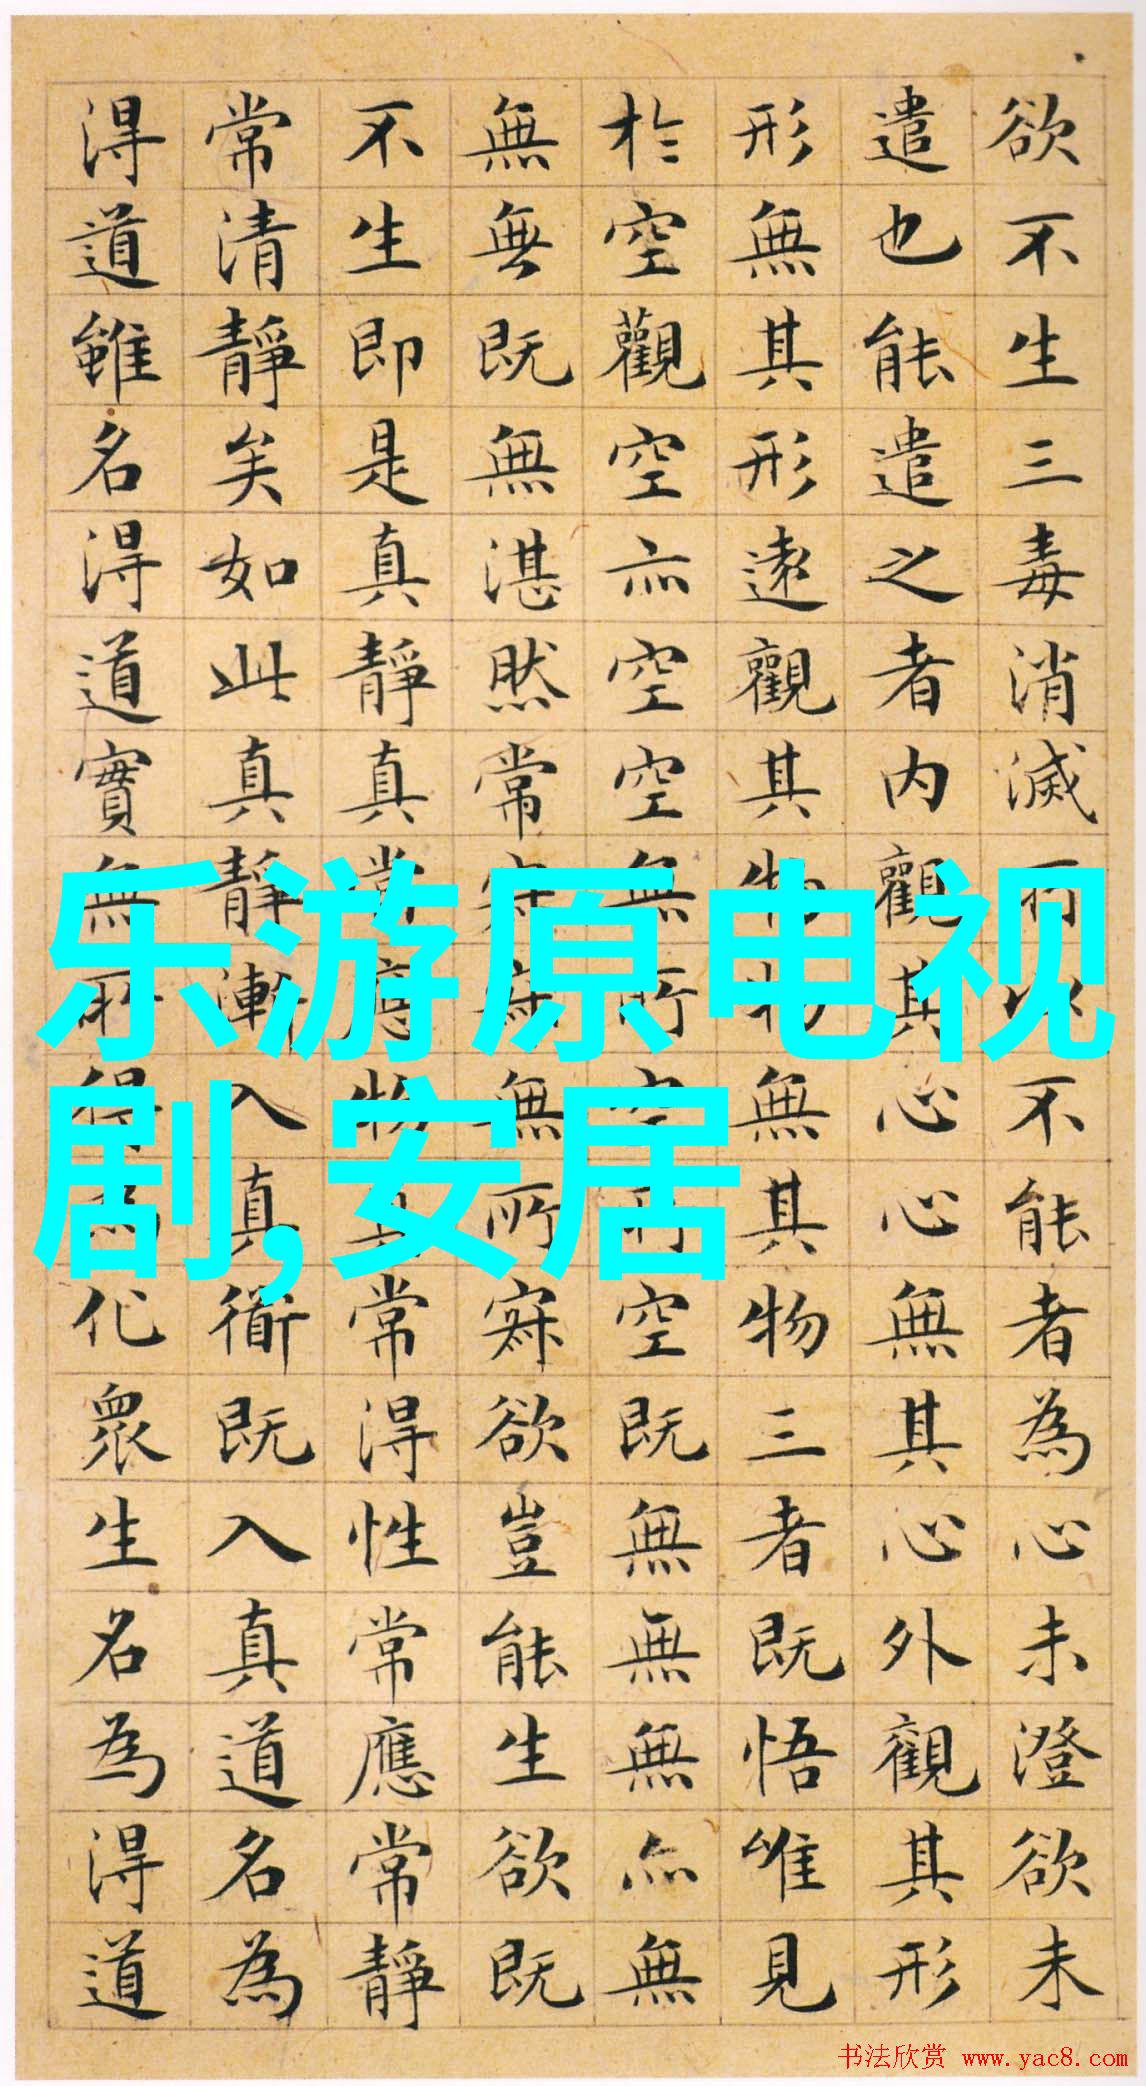 欲不生三毒消滅所以不能者為心未澄欲未
遣也能遣之者内觀其心心無其心外觀其形
形無其形遠觀其物物無其物三者既悟唯見
於空觀空亦空空無所空所空既無無無亦無
無無既無湛然常寂寂無所寂欲豈能生欲既
不生即是真靜真常應物真常得性常應常靜
常清靜矣如此真靜漸入真衜既入真道名為
得道雖名得道實無所得為化眾生名為得道
乐游原电视
剧,安居
书法欣赏 www.yac8.com